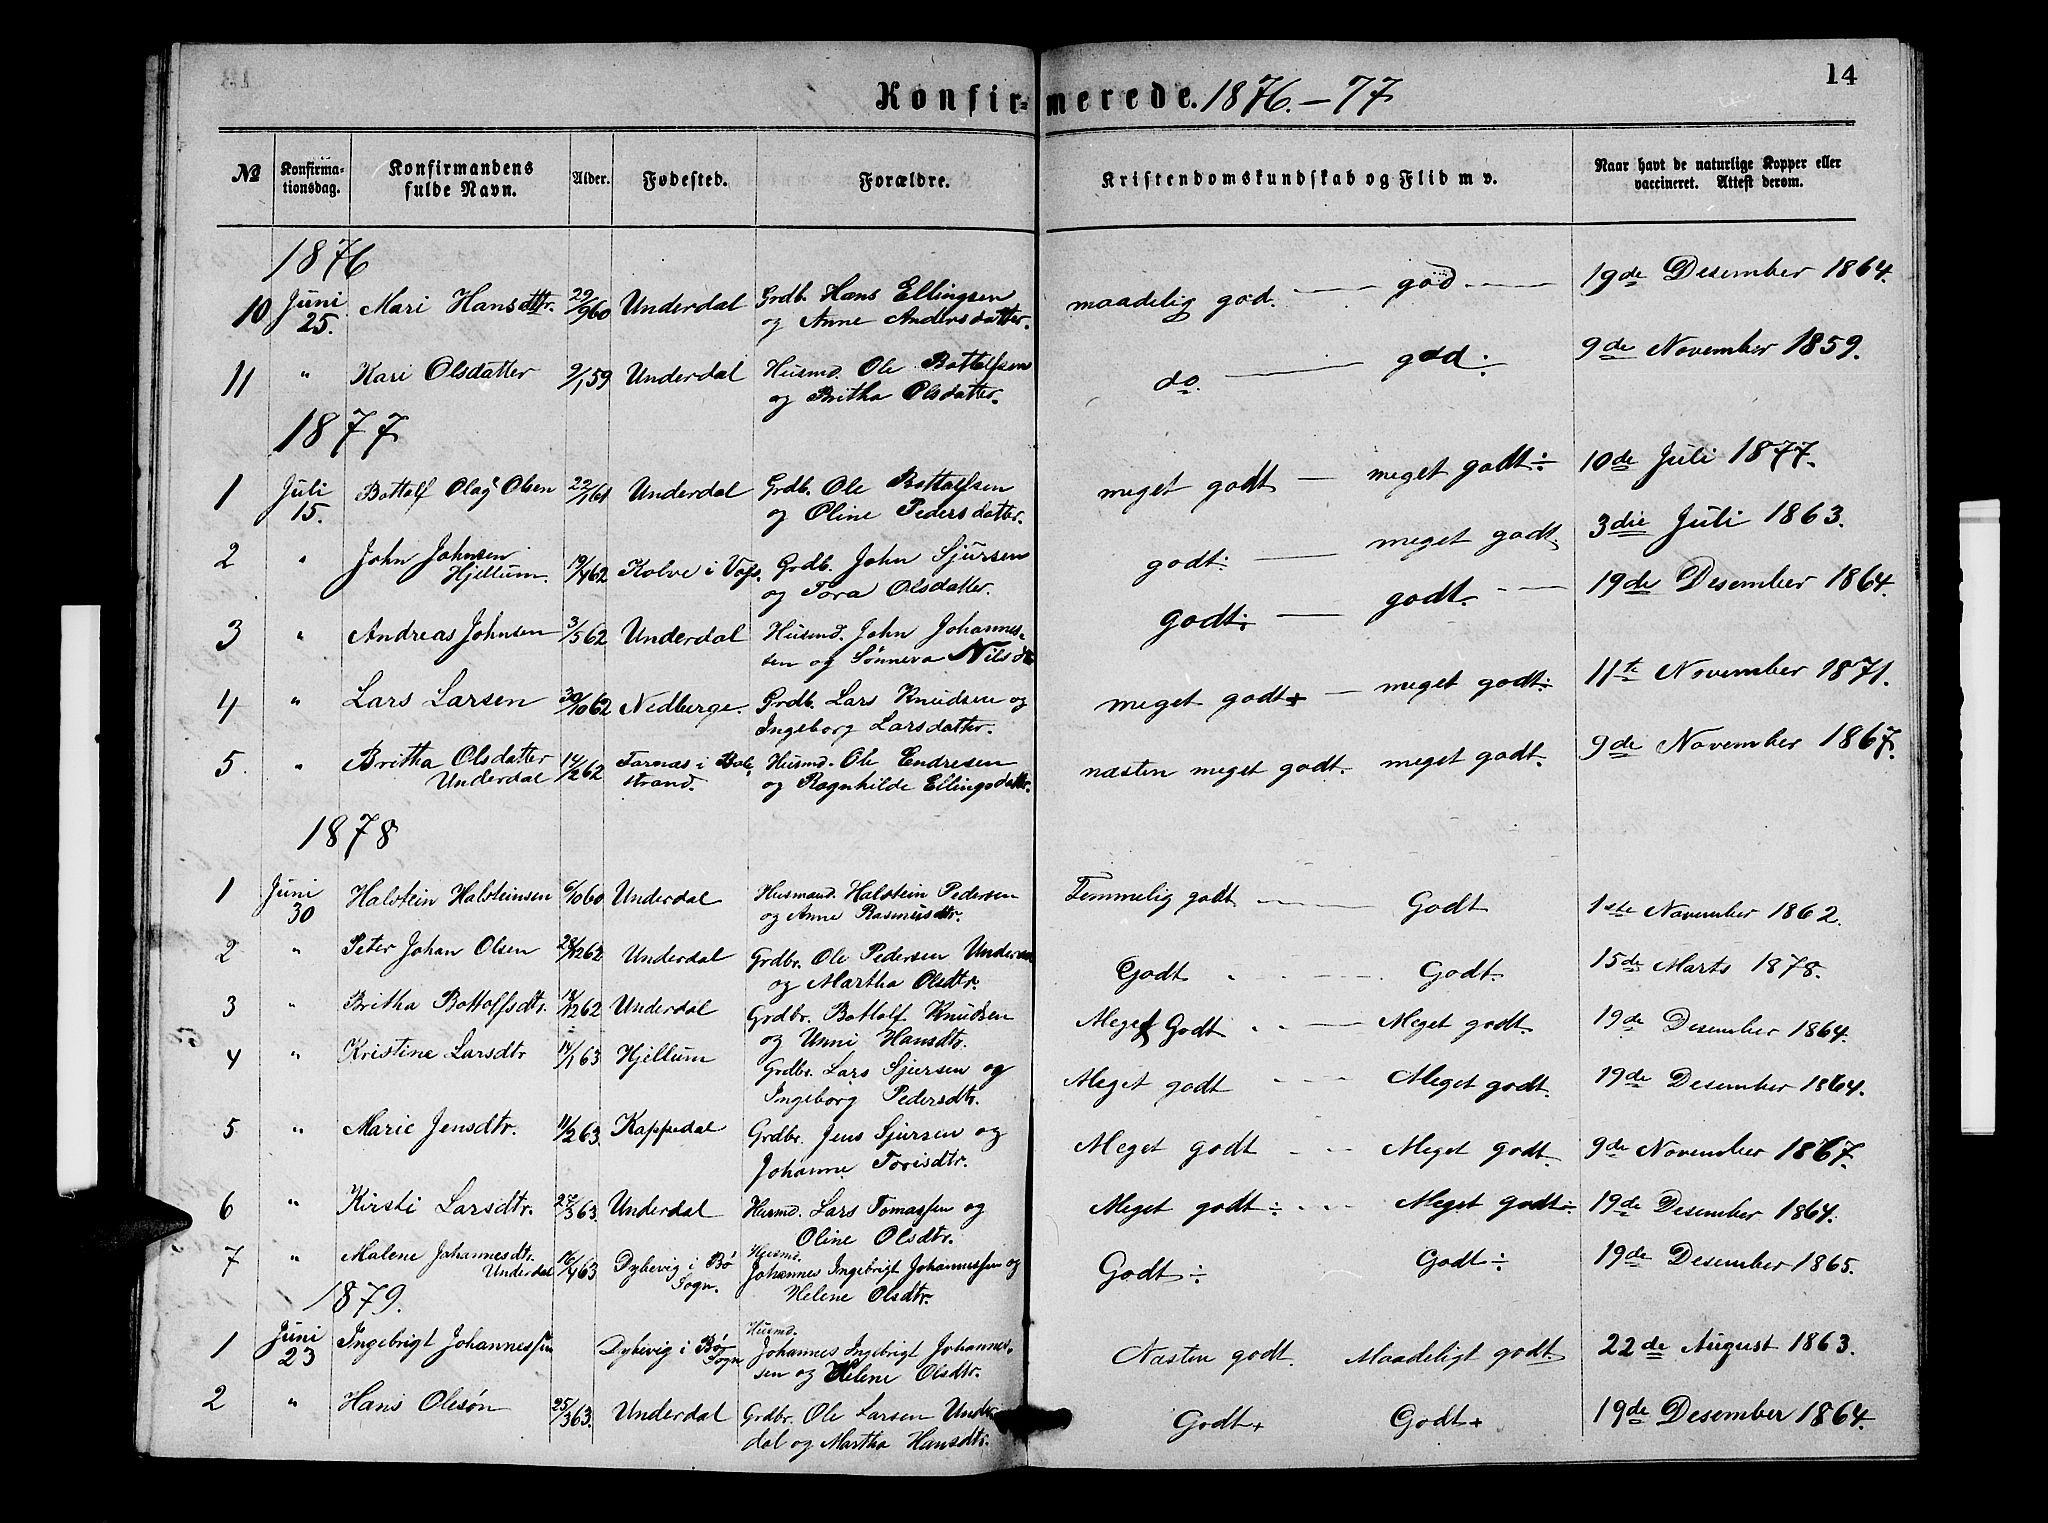 14
Konfirmerede. 1876.-77
№ Konfirmationsdag. Konfirmandens fulde Navn. Alder. Fødested. Forældre. Kristendomskundskab og Flid m v. Naar havt de naturlige Kopper eller vaccineret. Attest derom.
1876
10 Juni 25. Mari Hansdttr. 29/960 Underdal Grdb. Hans Ellingsen og Anne Andersdatter. maadelig god. — god — 19de Desember 1864.
11 " Kari Olsdatter 9/1 59 Underdal Husmd. Ole Bottolfsen og Britha Olsdatter. do. — god. 9de November 1859.
1877
1 Juli 15. Bottolf Olaf Olsen 22/161 Underdal Grdb. Ole Bottolfsen og Oline Pedersdatter. meget godt — meget godt÷ 10de Juli 1877.
2 " John Johnsen Hjellum. 19/462 Kolve i Vofs. Grdb. John Sjursen og Tora Olsdatter. godt. — meget godt. 3die Juli 1863.
3 " Andreas Johnsen 3/562 Underdal Husmd. John Johannessen og Sønneva Nilsdtr godt÷ — godt. — 19de Desember 1864.
4 " Lars Larsen 30/1062 Nedberge. Grdb. Lars Knudsen og Ingeborg Larsdatter. meget godt+ — meget godt÷ 11te November 1871.
5 " Britha Olsdatter Underdal 14/262 Farnæs i Balestrand. Husmd. Ole Endresen og Ragnhilde Ellingsdatter. næsten meget godt. meget godt. 9de November 1867.
1878
1 Juni 30 Halstein Halsteinsen 6/1060 Underdal Husmand. Halstein Pedersen og Anne Rasmusdtr. Temmelig godt — Godt 1ste November 1862.
2 " Peter Johan Olsen 28/1262 Underdal Grdbr. Ole Pedersen og Martha Olsdtr. Godt — Godt. 15de Marts 1878.
3 " Britha Bottolfsdtr. /1262 Underdal Grdbr. Bottolf Knudsen og Unni Hansdtr. Meget Godt — Meget godt. 19de Desember 1864.
4 " Kristine Larsdtr 14/163 Hjellum Grdbr. Lars Sjursen og Ingeborg Pedersdtr. Meget godt — Meget godt. 19de Desember 1864.
5 " Marie Jensdtr. 11/263. Kappadal Grdbr. Jens Sjursen og Johanne Torisdtr. Meget godt — Meget godt. 9de November 1867.
6 " Kirsti Larsdtr. 27/363. Underdal Husmd. Lars Tomassen og Oline Olsdtr. Meget godt÷ — Meget godt÷ 19de Desember 1864.
7 " Malene Johannesdtr. Underdal 16/463 Dybevig i Bø Sogn. Husmd. Johannes Ingebrigt Johannessen og Helene Olsdtr. Godt÷ Godt÷ 19de Desember 1865.
1879.
1 Juni 23 Ingebrigt Johannessen Dybevig i Bø Sogn Husmd. Johannes Ingebrigt Johannessen og Helene Olsdtr. Næsten godt. Maadeligt godt. 22de August 1863.
2 " Hans Olesøn 25/363. Underdal Grdbr. Ole Larsen Underdal og Martha Hansdtr. Godt+ Godt+ 19de Desember 1864.